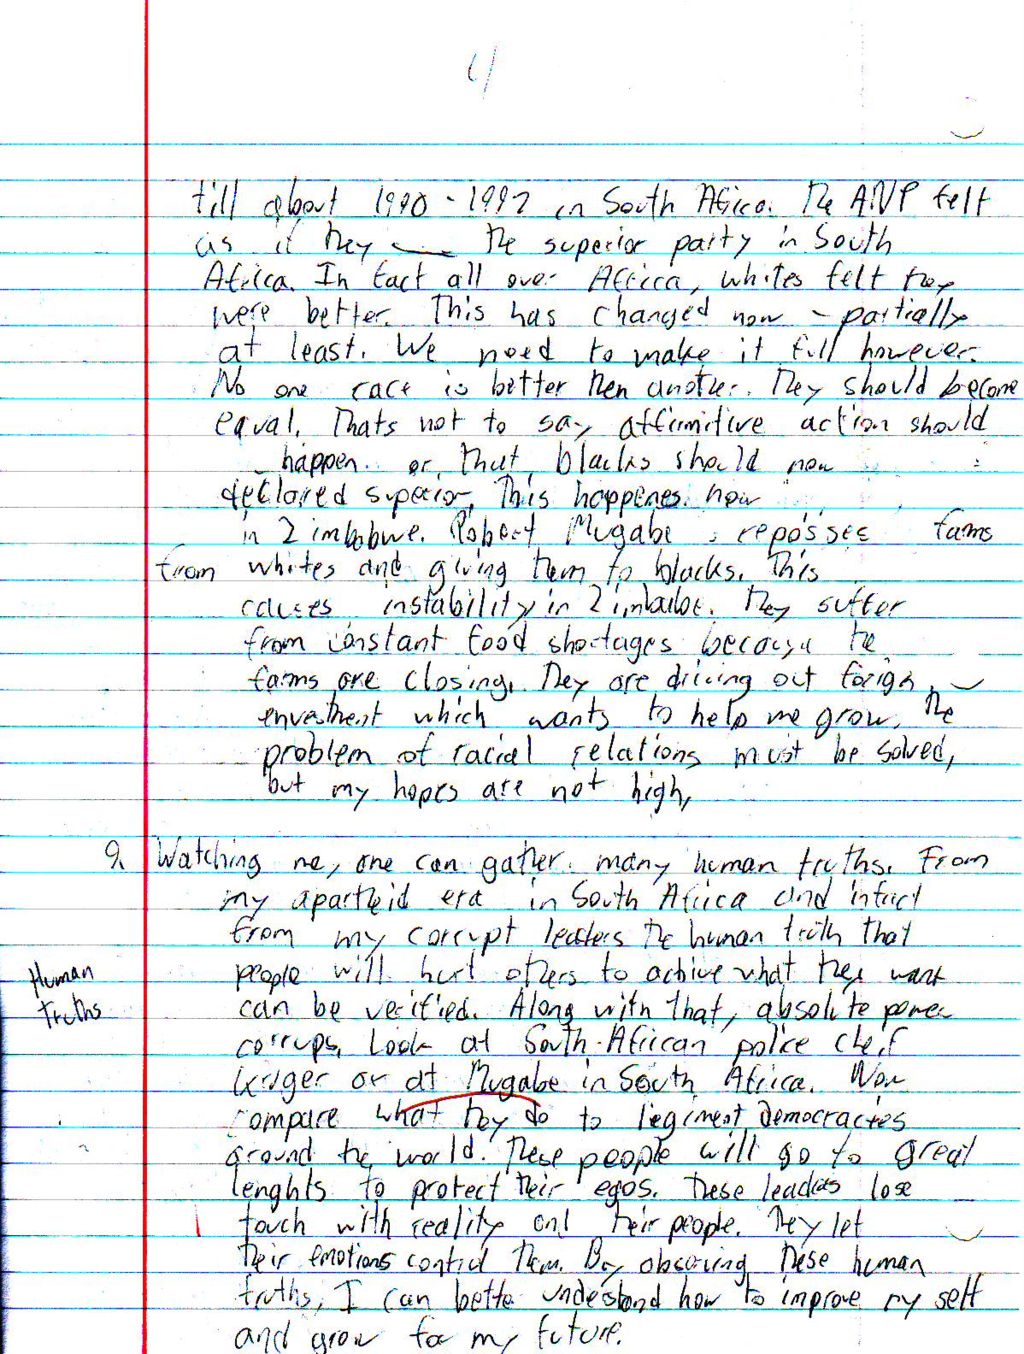 till about 1990-1992 in South Africa. The ANP felt
as if they the superior party in South
Africa. In fact all over Africa, whites felt they
were better. This has changed now - partially
at least. We need to make it full however.
No one race is better then another. They should become
equal. Thats not to say affirmitive action should
happen. or that blacks should now
declared superior. This happenes now
in Zimbabwe. Robert Mugabe reposses farms
from whites and giving them to blacks. This
causes instability in Zimbabwe. They suffer
from constant food shortages because the
farms are closing. They are driving out forign
envestment which wants to help me grow. The
problem of racial relations must be solved,
but my hopes are not high,
9. Watching me, one can gather many human truths. From
my apartheid era in South Africa and infact
from my corrupt leaders the human truth that
Human truths
people will hurt others to achive what they want
can be verified. Along with that, absolute power
corrups. Look at South African police cheif
Kruger or at Mugabe in South Africa. Now
compare what they do to legiment democracies
around the world. These people will go to great
lenghts to protect their egos. These leaders lose
touch with reality and their people. They let
their emotions control them. By observing these human
truths, I can better understand how to improve my self
and grow for my future.